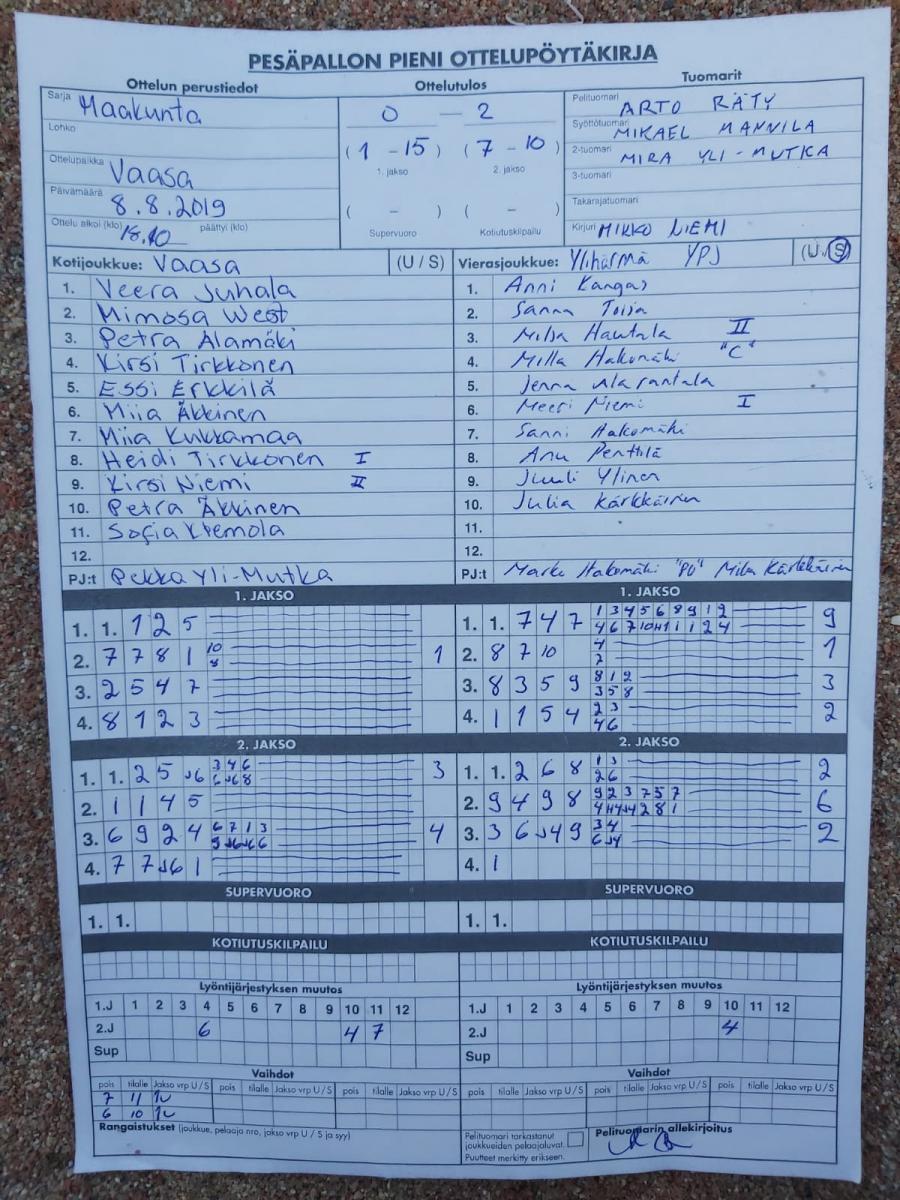 PESÄPALLON PIENI OTTELUPÖYTÄKIRJA
Ottelun perustiedot Ottelutulos Tuomarit
Sarja Maakunta
Lohko
Ottelupaikka Vaasa
Päivämäärä 8.8.2019
Ottelu alkoi (klo) 18.40 päättyi (klo)
0 – 2
(1 – 15) (7 – 10)
1. jakso 2. jakso
( – ) ( – )
Supervuoro Kotiutuskilpailu
Pelituomari ARTO RÄTY
Syöttötuomari MIKAEL MANNILA
2-tuomari MIRA YLI-MUTKA
3-tuomari
Takarajatuomari
Kirjuri MIKKO NIEMI
Kotijoukkue: Vaasa (U / S)
1. Veera Juhala
2. Mimosa West
3. Petra Alamäki
4. Kirsi Tirkkonen
5. Essi Erkkilä
6. Miia Äkkinen
7. Miia Kukkamaa
8. Heidi Tirkkonen I
9. Kirsi Niemi II
10. Petra Äkkinen
11. Sofia Klemola
12.
PJ:t Pekka Yli-Mutka
Vierasjoukkue: Ylihärmä YPJ (U / S)
1. Anni Kangas
2. Sanna Toija
3. Milja Hautala II
4. Milla Hakomäki "C"
5. Jenna Ala
6. Meeri Niemi I
7. Sanni Hakomäki
8. Anu Penttilä
9. Juuli Ylinen
10. Julia Kärkkäinen
11.
12.
PJ:t Marko Hakomäki Kärkkäinen
1. JAKSO
1. 1. 1 2 5
2. 7 7 8 1 10 8 1
3. 2 5 4 7
4. 8 1 2 3
1. JAKSO
1. 1. 7 4 7 1 3 4 5 6 8 9 1 2 9
4 6 7 10 1 1 2 4
2. 8 7 10 4 7 1
3. 8 3 5 9 8 1 2 3
3 5 8
4. 1 1 5 4 2 3 2
4 6
2. JAKSO
1. 1. 2 5 J6 3 4 6 3
6 J6 8
2. 1 1 4 5
3. 6 9 2 4 6 7 1 3 4
9 J6 J6 6
4. 7 7 J6 1
2. JAKSO
1. 1. 2 6 8 1 3 2
2 6
2. 9 4 9 8 9 2 3 7 5 7 6
4 J4 2 8 1
3. 3 6 J4 9 3 4 2
6 J4
4. 1
SUPERVUORO SUPERVUORO
1. 1. 1. 1.
KOTIUTUSKILPAILU KOTIUTUSKILPAILU
Lyöntijärjestyksen muutos
1.J 1 2 3 4 5 6 7 8 9 10 11 12
2.J 6 4 7
Sup
Lyöntijärjestyksen muutos
1.J 1 2 3 4 5 6 7 8 9 10 11 12
2.J 4
Sup
Vaihdot Vaihdot
pois tilalle Jakso vrp U / S pois tilalle Jakso vrp U / S pois tilalle Jakso vrp U / S pois tilalle Jakso vrp U / S pois tilalle Jakso vrp U / S pois tilalle Jakso vrp U / S
7 11 1U
6 10 1U
Rangaistukset (joukkue, pelaaja nro, jakso vrp U / S ja syy)
Pelituomari tarkastanut
joukkueiden pelaajaluvat.
Puutteet merkitty erikseen.
Pelituomarin allekirjoitus